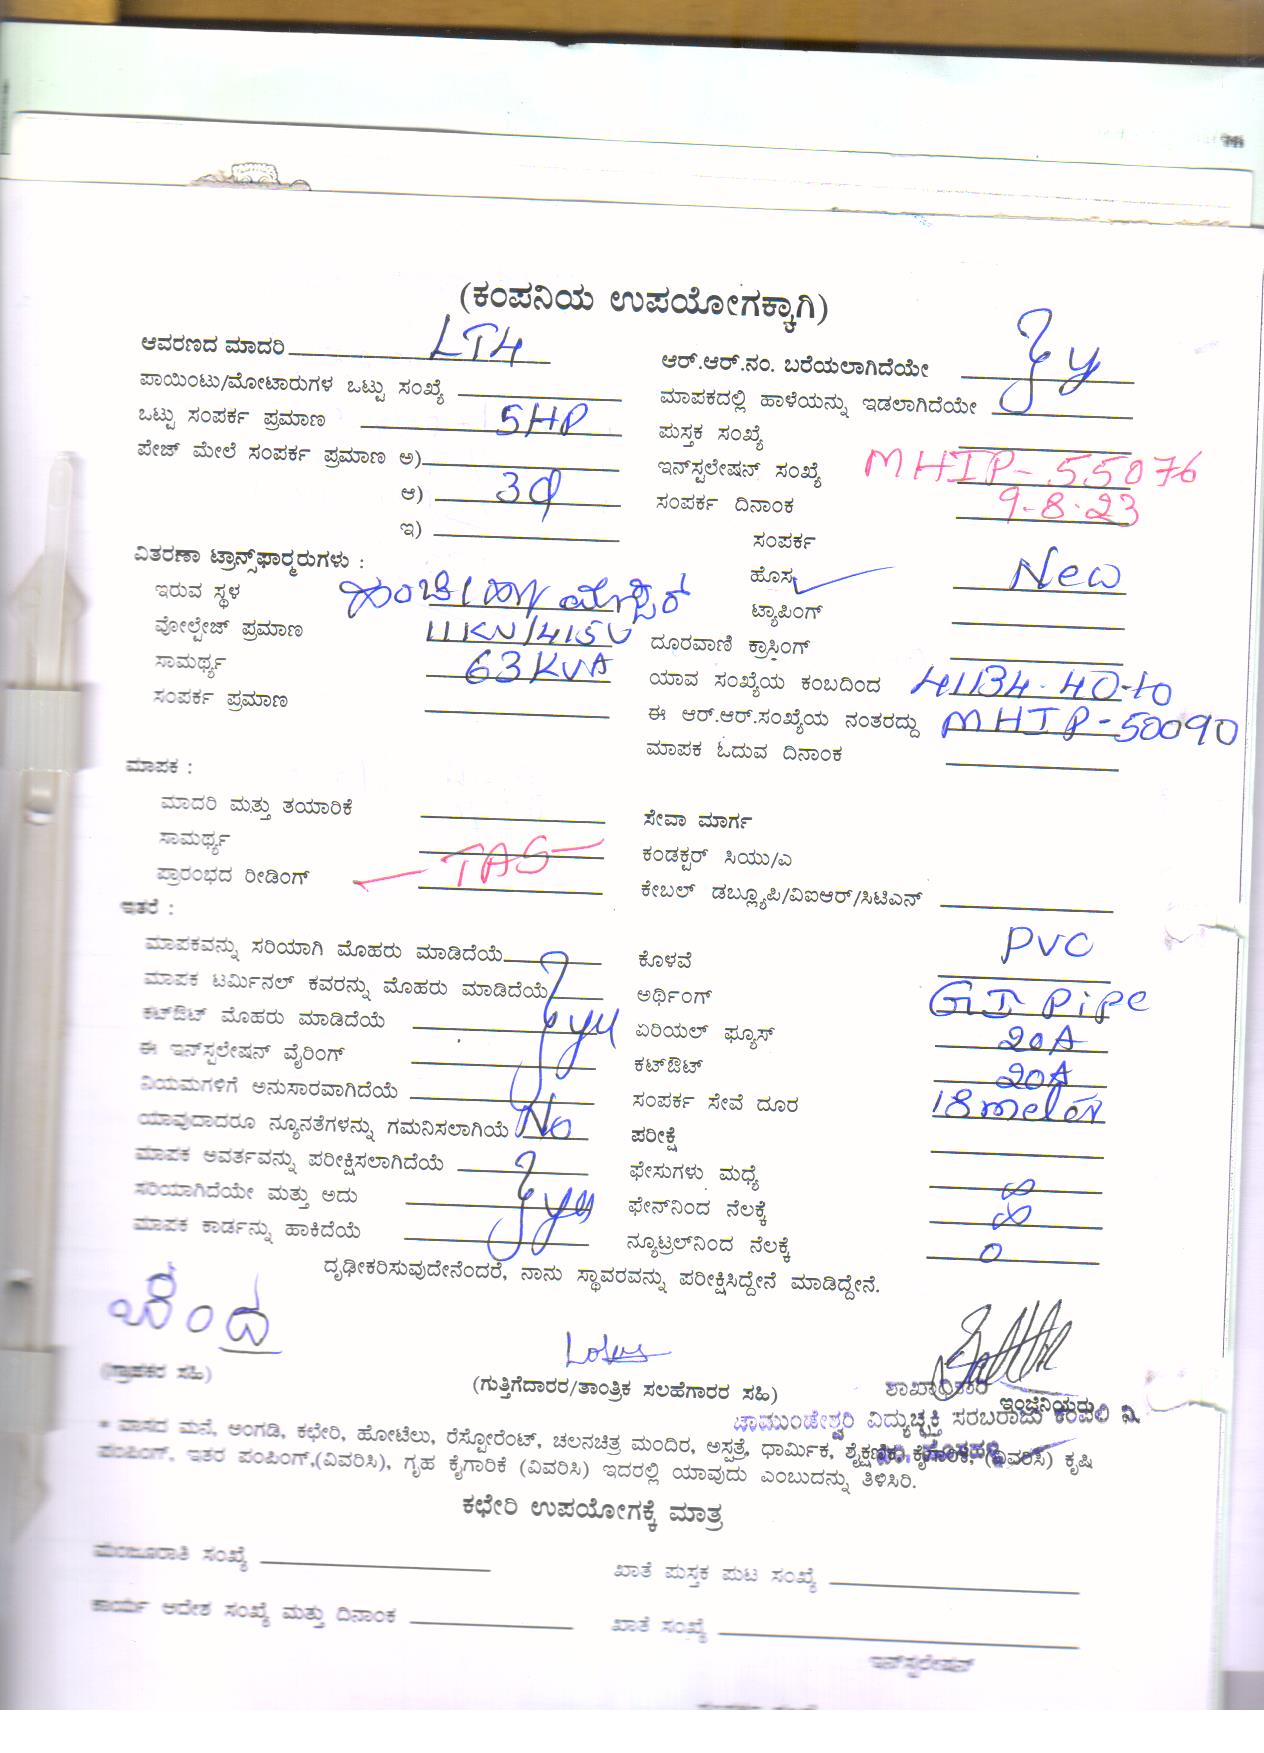 (ಕಂಪನಿಯ ಉಪಯೋಗಕ್ಕಾಗಿ)
ಆವರಣದ ಮಾದರಿ LT4
ಪಾಯಿಂಟು/ಮೋಟಾರುಗಳ ಒಟ್ಟು ಸಂಖ್ಯೆ
ಒಟ್ಟು ಸಂಪರ್ಕ ಪ್ರಮಾಣ 5HP
ಪೇಜ್ ಮೇಲೆ ಸಂಪರ್ಕ ಪ್ರಮಾಣ ಅ)
ಆ) 3φ
ಇ)
ವಿತರಣಾ ಟ್ರಾನ್ಸ್‌ಫಾರ್ಮರುಗಳು :
ಇರುವ ಸ್ಥಳ
ವೋಲ್ಟೇಜ್ ಪ್ರಮಾಣ 11KV/415V
ಸಾಮರ್ಥ್ಯ 63KVA
ಸಂಪರ್ಕ ಪ್ರಮಾಣ
ಆರ್.ಆರ್.ನಂ. ಬರೆಯಲಾಗಿದೆಯೇ
ಮಾಪಕದಲ್ಲಿ ಹಾಳೆಯನ್ನು ಇಡಲಾಗಿದೆಯೇ
ಪುಸ್ತಕ ಸಂಖ್ಯೆ
ಇನ್‌ಸ್ಟಲೇಷನ್ ಸಂಖ್ಯೆ MHIP-55076
ಸಂಪರ್ಕ ದಿನಾಂಕ 9-8-23
ಸಂಪರ್ಕ
ಹೊಸ New
ಟ್ಯಾಪಿಂಗ್
ದೂರವಾಣಿ ಕ್ರಾಸಿಂಗ್
ಯಾವ ಸಂಖ್ಯೆಯ ಕಂಬದಿಂದ
ಈ ಆರ್.ಆರ್.ಸಂಖ್ಯೆಯ ನಂತರದ್ದು MHIP-50090
ಮಾಪಕ ಓದುವ ದಿನಾಂಕ
ಮಾಪಕ :
ಮಾದರಿ ಮತ್ತು ತಯಾರಿಕೆ
ಸಾಮರ್ಥ್ಯ
ಪ್ರಾರಂಭದ ರೀಡಿಂಗ್
ಸೇವಾ ಮಾರ್ಗ
ಕಂಡಕ್ಟರ್ ಸಿಯು/ಎ
ಕೇಬಲ್ ಡಬ್ಲ್ಯೂಪಿ/ವಿಐಆರ್/ಸಿಟಿಎನ್
ಇತರೆ :
ಮಾಪಕವನ್ನು ಸರಿಯಾಗಿ ಮೊಹರು ಮಾಡಿದೆಯೆ
ಮಾಪಕ ಟರ್ಮಿನಲ್ ಕವರನ್ನು ಮೊಹರು ಮಾಡಿದೆಯೆ
ಕಟ್‌ಔಟ್ ಮೊಹರು ಮಾಡಿದೆಯೆ
ಈ ಇನ್‌ಸ್ಟಲೇಷನ್ ವೈರಿಂಗ್
ನಿಯಮಗಳಿಗೆ ಅನುಸಾರವಾಗಿದೆಯೆ
ಯಾವುದಾದರೂ ನ್ಯೂನತೆಗಳನ್ನು ಗಮನಿಸಲಾಗಿಯೆ No
ಮಾಪಕ ಅವರ್ತವನ್ನು ಪರೀಕ್ಷಿಸಲಾಗಿದೆಯೆ
ಸರಿಯಾಗಿದೆಯೇ ಮತ್ತು ಅದು
ಮಾಪಕ ಕಾರ್ಡನ್ನು ಹಾಕಿದೆಯೆ
ಕೊಳವೆ PVC
ಅರ್ಥಿಂಗ್ GI Pipe
ಏರಿಯಲ್ ಫ್ಯೂಸ್ 20A
ಕಟ್‌ಔಟ್ 20A
ಸಂಪರ್ಕ ಸೇವೆ ದೂರ
ಪರೀಕ್ಷೆ
ಫೇಸುಗಳು ಮಧ್ಯೆ ∞
ಫೇಸ್‌ನಿಂದ ನೆಲಕ್ಕೆ ∞
ನ್ಯೂಟ್ರಲ್‌ನಿಂದ ನೆಲಕ್ಕೆ 0
ದೃಢೀಕರಿಸುವುದೇನೆಂದರೆ, ನಾನು ಸ್ಥಾವರವನ್ನು ಪರೀಕ್ಷಿಸಿದ್ದೇನೆ ಮಾಡಿದ್ದೇನೆ.
(ಗ್ರಾಹಕರ ಸಹಿ)
(ಗುತ್ತಿಗೆದಾರರ/ತಾಂತ್ರಿಕ ಸಲಹೆಗಾರರ ಸಹಿ)
ಶಾಖಾಧಿಕಾರಿ
ಇಂಜಿನಿಯರು
ಚಾಮುಂಡೇಶ್ವರಿ ವಿದ್ಯುಚ್ಛಕ್ತಿ ಸರಬರಾಜು ಕಂಪನಿ ನಿ.
* ವಾಸದ ಮನೆ, ಅಂಗಡಿ, ಕಛೇರಿ, ಹೋಟೆಲು, ರೆಸ್ಟೋರೆಂಟ್, ಚಲನಚಿತ್ರ ಮಂದಿರ, ಅಸ್ಪತ್ರೆ, ಧಾರ್ಮಿಕ, ಶೈಕ್ಷಣಿಕ, ಕೈಗಾರಿಕೆ, (ವಿವರಿಸಿ) ಕೃಷಿ
ಪಂಪಿಂಗ್, ಇತರ ಪಂಪಿಂಗ್,(ವಿವರಿಸಿ), ಗೃಹ ಕೈಗಾರಿಕೆ (ವಿವರಿಸಿ) ಇದರಲ್ಲಿ ಯಾವುದು ಎಂಬುದನ್ನು ತಿಳಿಸಿರಿ.
ಕಛೇರಿ ಉಪಯೋಗಕ್ಕೆ ಮಾತ್ರ
ಮಂಜೂರಾತಿ ಸಂಖ್ಯೆ
ಖಾತೆ ಪುಸ್ತಕ ಪುಟ ಸಂಖ್ಯೆ
ಕಾರ್ಯ ಆದೇಶ ಸಂಖ್ಯೆ ಮತ್ತು ದಿನಾಂಕ
ಖಾತೆ ಸಂಖ್ಯೆ
ಇನ್‌ಸ್ಟಲೇಷನ್